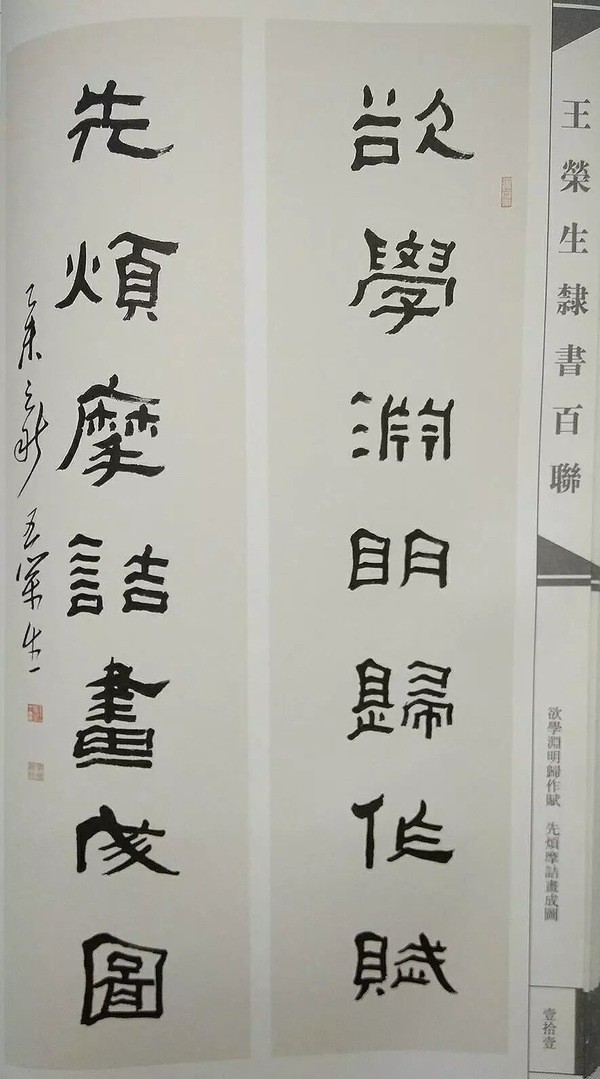 王榮生隸書百聯
欲學淵明歸作賦
先煩摩詰畫成圖
乙未之秋 王榮生
欲學淵明歸作賦 先煩摩詰畫成圖
壹拾壹